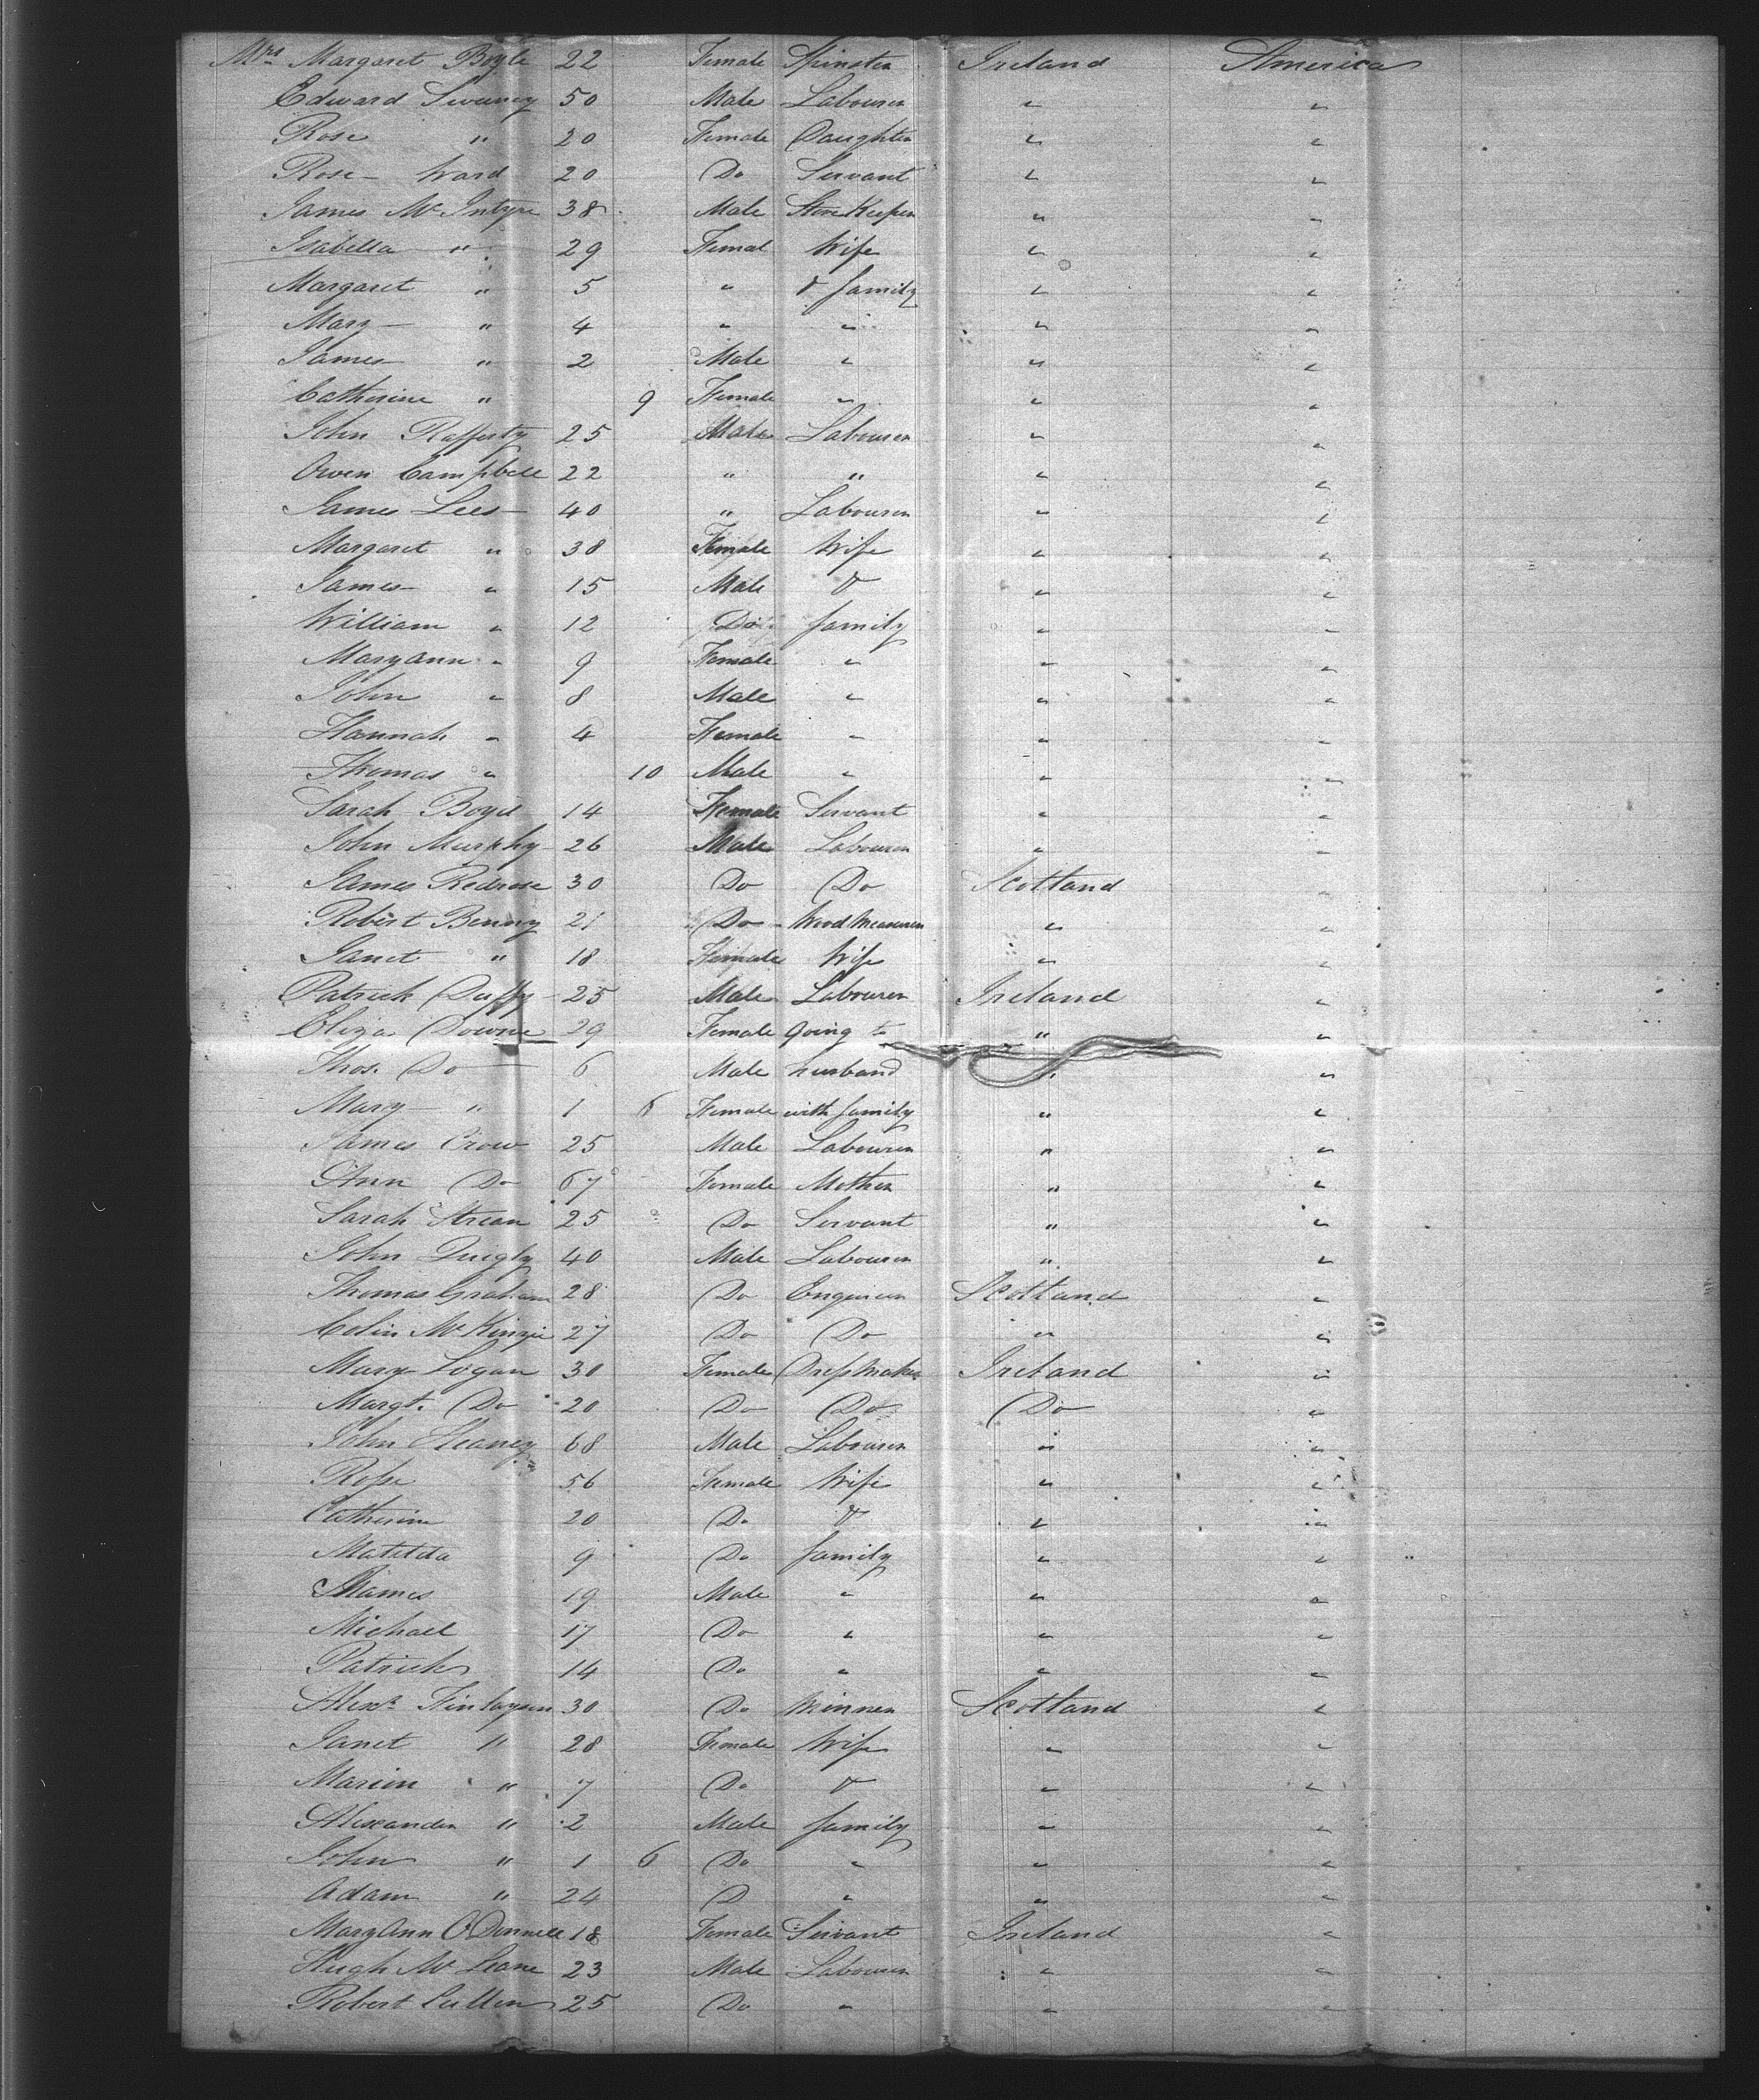 Mrs Margaret Boyle 22 Female Spinster Ireland America
Edward Sweeney 50 Male Labourer " "
Rose " 20 Female Daughter " "
Rose Ward 20 Do Servant " "
James McIntyre 38 Male Store Keeper " "
Isabella " 29 Femal Wife " "
Margaret " 5 " & family " "
Mary " 4 " " " "
James " 2 Male " " "
Catherine " 9 Female " " "
John Rafferty 25 Male Labourer " "
Owen Campbell 22 " " " "
James Lees 40 " Labourer " "
Margaret " 38 Female Wife " "
James " 15 Male & " "
William " 12 Do family " "
Maryann " 9 Female " " "
John " 8 Male " " "
Hannah " 4 Female " " "
Thomas " 10 Male " " "
Sarah Boyd 14 Female Servant " "
John Murphy 26 Male Labourer " "
James Redrose 30 Do Do Scotland "
Robert Benny 21 Do Wood Measurer " "
Janet " 18 Female Wife " "
Patrick Duffy 25 Male Labourer Ireland "
Eliza Downe 29 Female Going to " "
Thos. Do 6 Male husband " "
Mary " 1 6 Female with family " "
James Crow 25 Male Labourer " "
Ann Do 67 Female Mother " "
Sarah Strean 25 Do Servant " "
John Quigly 40 Male Labourer " "
Thomas Graham 28 Do Engineer Scotland "
Colin McKinzie 27 Do Do " "
Mary Logan 30 Female Dressmaker Ireland "
Margt. Do 20 Do Do Do "
John Heaney 68 Male Labourer " "
Rose 56 Female Wife " "
Catherine 20 Do & " "
Matilda 9 Do family " "
James 19 Male " " "
Michael 17 Do " " "
Patrick 14 Do " " "
Alexr Finlayson 30 Do Minner Scotland "
Janet " 28 Female Wife " "
Marion " 7 Do & " "
Alexander " 2 Male family " "
John " 1 6 Do " " "
Adam " 24 D " " "
MaryAnn O'Donnell 18 Female Servant Ireland "
Hugh McLeane 23 Male Labourer " "
Robert Cullen 25 Do " " "